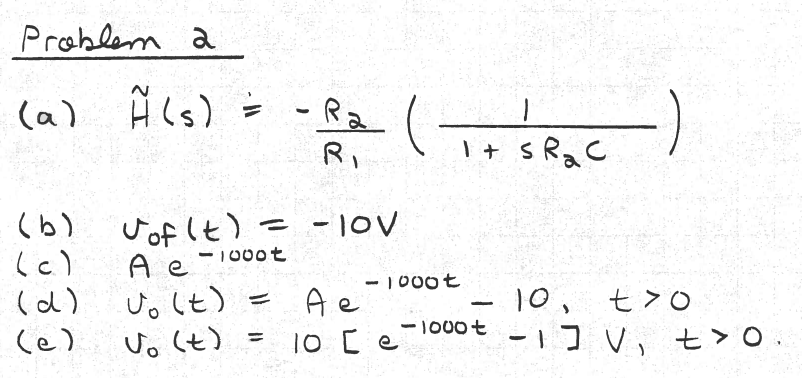 Problem 2
(a) H̃(s) = -R₂/R₁ ( 1 / (1 + sR₂C) )
(b) v_of(t) = -10V
(c) A e^{-1000t}
(d) v_o(t) = A e^{-1000t} - 10, t > 0
(e) v_o(t) = 10 [ e^{-1000t} - 1 ] V, t > 0.